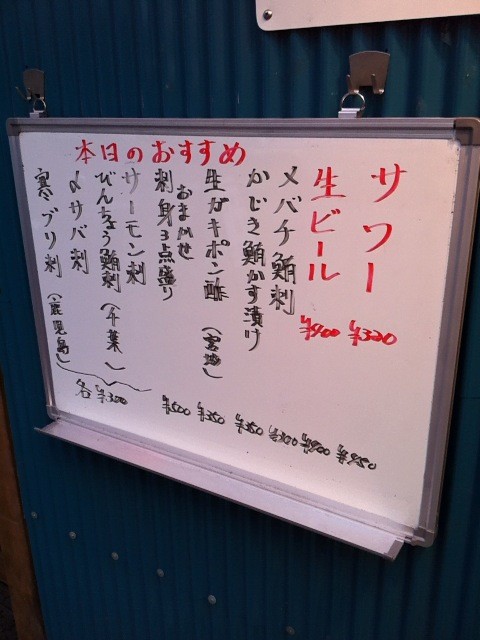 本日のおすすめ
サワー ¥320
生ビール ¥400
メバチ鮪刺
かじき鮪かす漬け
生ガキポン酢(宮城)
おまかせ
刺身3点盛り
サーモン刺
びんちょう鮪刺(千葉)
〆サバ刺
寒ブリ刺(鹿児島)
各¥300
¥500
¥350
¥350
¥450